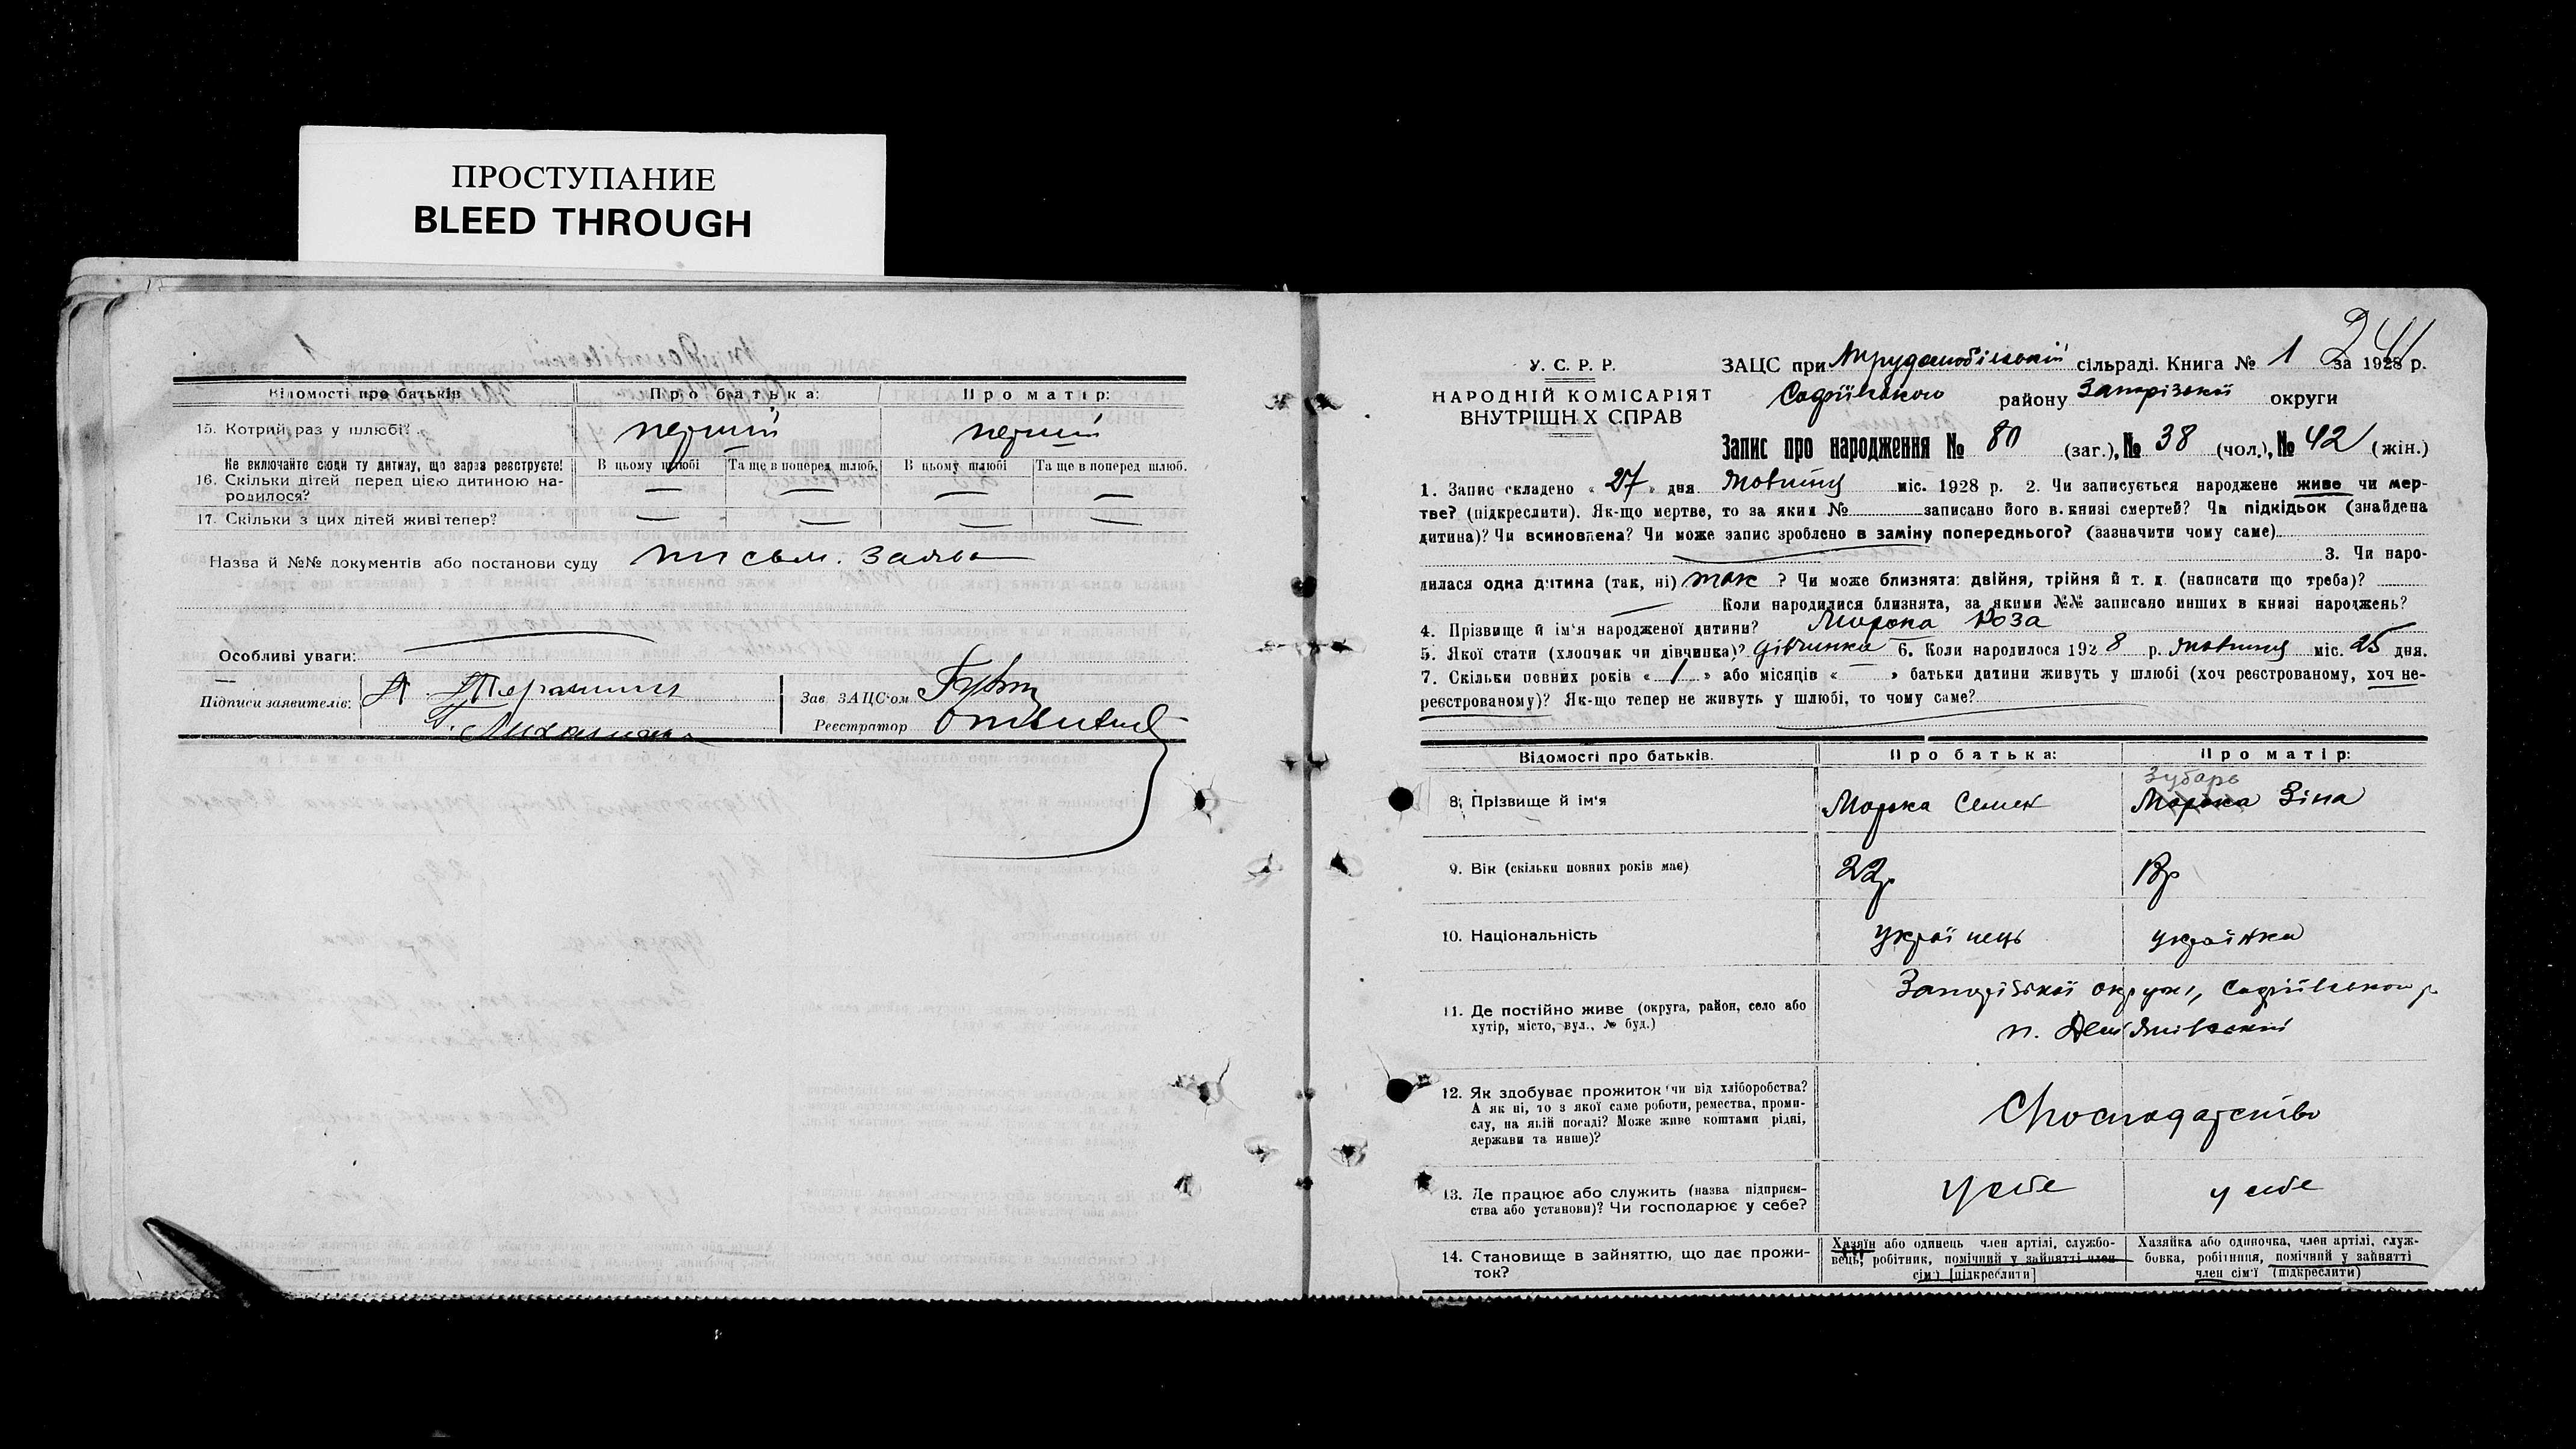 ПРОСТУПАНИЕ
BLEED THROUGH
Відомості про батьків
Про батька:
Про матір:
15. Котрий раз у шлюбі?
перший
перший
Не включайте сюди ту дитину, що зараз реєструєте!
В цьому шлюбі
Та ще в поперед шлюб.
В цьому шлюбі
Та ще в поперед шлюб.
16. Скільки дітей перед цією дитиною на-
родилося?
— — — —
17. Скільки з цих дітей живі тепер?
— — — —
Назва й №№ документів або постанови суду письм. заява
Особливі уваги:
Підписи заявителів:
Зав. ЗАЦС'ом
Реєстратор
У. С. Р. Р.
НАРОДНІЙ КОМІСАРІЯТ
ВНУТРІШН Х СПРАВ
ЗАЦС при Трудолюбівській сільраді. Книга № 1 за 1928 р.
241
Софіївського району Запорізької округи
Запис про народження № 80 (заг.), № 38 (чол.), № 42 (жін.)
1. Запис складено « 27 » дня Жовтня міс. 1928 р. 2. Чи записується народжене живе чи мер-
тве? (підкреслити). Як-що мертве, то за яким № записано його в книзі смертей? Чи підкідьок (знайдена
дитина)? Чи всиновлена? Чи може запис зроблено в заміну попереднього? (зазначити чому саме)
3. Чи наро-
дилася одна дитина (так, ні) так ? Чи може близнята: двійня, трійня й т. д. (написати що треба)?
— Коли народилися близнята, за якими №№ записано инших в книзі народжень?
4. Прізвище й ім'я народженої дитини? Морока Роза
5. Якої стати (хлопчик чи дівчинка)? дівчинка 6. Коли народилося 192 8 р. жовтня міс. 25 дня.
7. Скільки повних років « 1 » або місяців « — » батьки дитини живуть у шлюбі (хоч реєстрованому, хоч не-
реєстрованому)? Як-що тепер не живуть у шлюбі, то чому саме?
Відомості про батьків.
Про батька:
Про матір:
8. Прізвище й ім'я
Морока Семен
Зубарь
Морока Зіна
9. Вік (скільки повних років має)
22р.
10. Національність
українець
українка
11. Де постійно живе (округа, район, село або
хутір, місто, вул., № буд.)
Запорізької округи, Софіївського р
12. Як здобуває прожиток (чи від хліборобства?
А як ні, то з якої саме роботи, ремества, проми-
слу, на якій посаді? Може живе коштами рідні,
держави та инше)?
Сг господарство
13. Де працює або служить (назва підприєм-
ства або установи)? Чи господарює у себе?
у себе
у себе
14. Становище в зайняттю, що дає прожи-
ток?
Хазяїн або одинець член артілі, службо-
вець, робітник, помічний у зайнятті член
сім'ї [підкреслити]
Хазяйка або одиночка, член артілі, служ-
бовка, робітниця, помічний у зайнятті
член сім'ї (підкреслити)